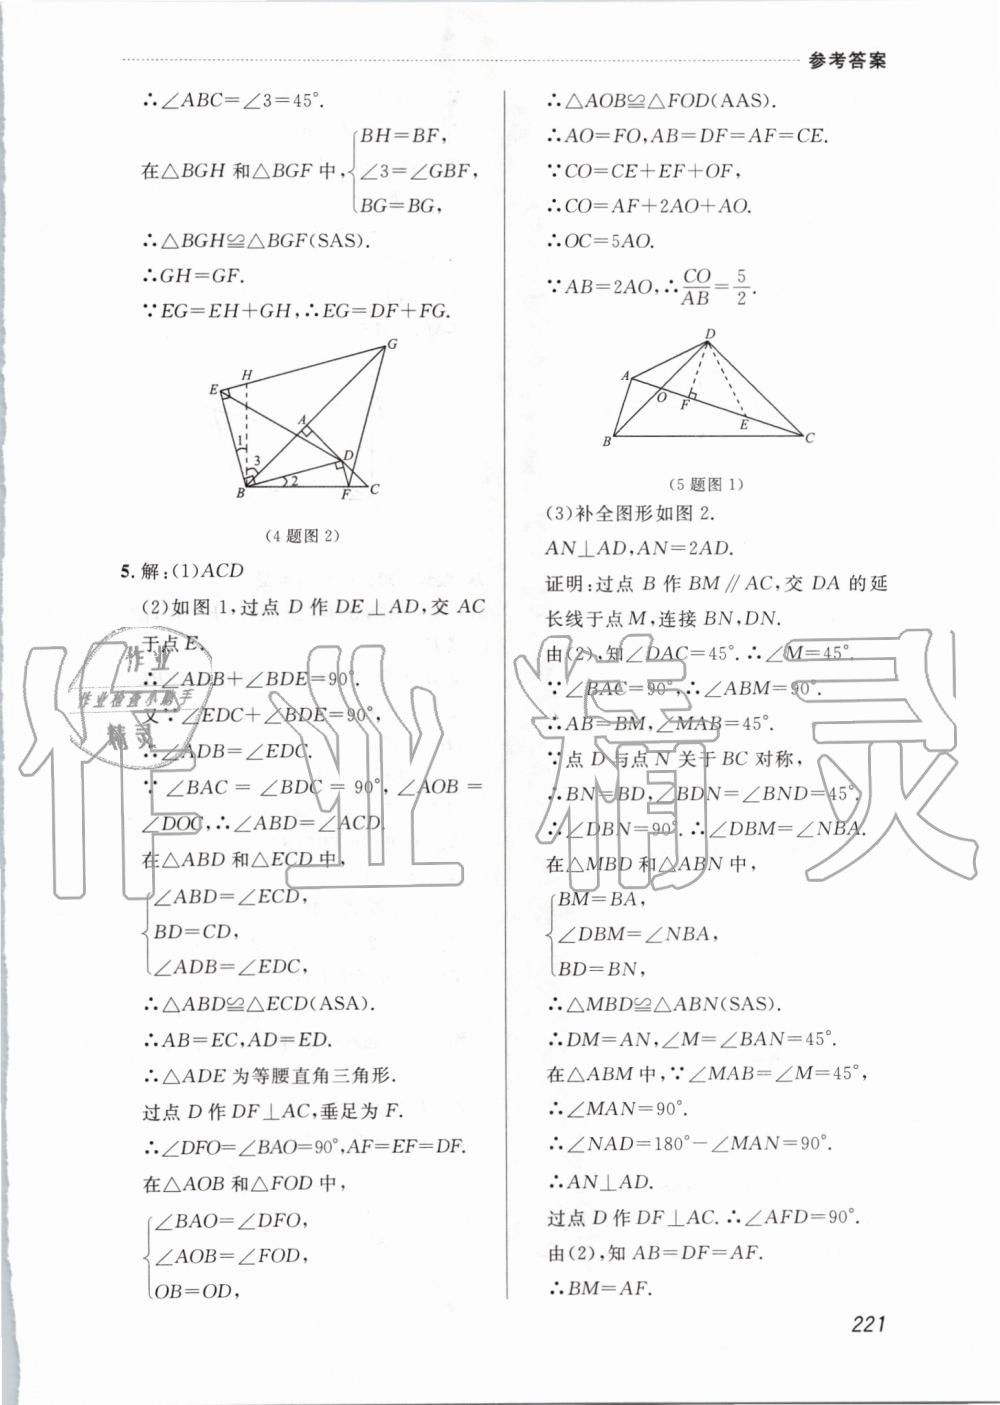 参考答案
∴∠ABC=∠3=45°.
在△BGH 和△BGF 中,{BH=BF,
∠3=∠GBF,
BG=BG,
∴△BGH≌△BGF(SAS).
∴GH=GF.
∵EG=EH+GH,∴EG=DF+FG.
G
H
E
A
1
3
D
2
B
F
C
(4题图2)
5.解:(1)ACD
(2)如图1,过点 D 作 DE⊥AD,交 AC
于点E.
∴∠ADB+∠BDE=90°.
又∵∠EDC+∠BDE=90°,
∴∠ADB=∠EDC.
∵ ∠BAC = ∠BDC = 90°, ∠AOB =
∠DOC,∴∠ABD=∠ACD.
在△ABD 和△ECD 中,
{∠ABD=∠ECD,
BD=CD,
∠ADB=∠EDC,
∴△ABD≌△ECD(ASA).
∴AB=EC,AD=ED.
∴△ADE 为等腰直角三角形.
过点 D 作 DF⊥AC,垂足为 F.
∴∠DFO=∠BAO=90°,AF=EF=DF.
在△AOB 和△FOD 中,
{∠BAO=∠DFO,
∠AOB=∠FOD,
OB=OD,
∴△AOB≌△FOD(AAS).
∴AO=FO,AB=DF=AF=CE.
∵CO=CE+EF+OF,
∴CO=AF+2AO+AO.
∴OC=5AO.
∵AB=2AO,∴CO/AB=5/2.
D
A
O
F
E
B
C
(5题图1)
(3)补全图形如图 2.
AN⊥AD,AN=2AD.
证明:过点 B 作 BM∥AC,交 DA 的延
长线于点M,连接 BN,DN.
由(2),知∠DAC=45°.∴∠M=45°.
∵∠BAC=90°,∴∠ABM=90°.
∴AB=BM,∠MAB=45°.
∵点 D 与点 N 关于 BC 对称,
∴BN=BD,∠BDN=∠BND=45°.
∴∠DBN=90°.∴∠DBM=∠NBA.
在△MBD 和△ABN 中,
{BM=BA,
∠DBM=∠NBA,
BD=BN,
∴△MBD≌△ABN(SAS).
∴DM=AN,∠M=∠BAN=45°.
在△ABM 中,∵∠MAB=∠M=45°,
∴∠MAN=90°.
∴∠NAD=180°−∠MAN=90°.
∴AN⊥AD.
过点 D 作 DF⊥AC.∴∠AFD=90°.
由(2),知 AB=DF=AF.
∴BM=AF.
221
作业精灵
作业
作业检查小助手
精灵